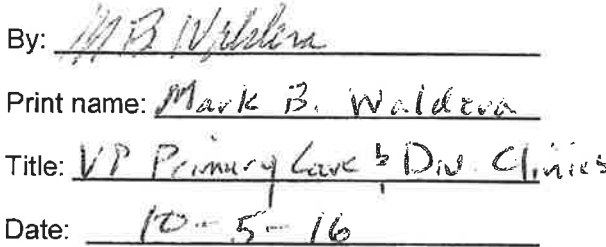 By: M B Waldera
Print name: Mark B. Waldera
Title: VP Primary Care & Div. Clinics
Date: 10-5-16